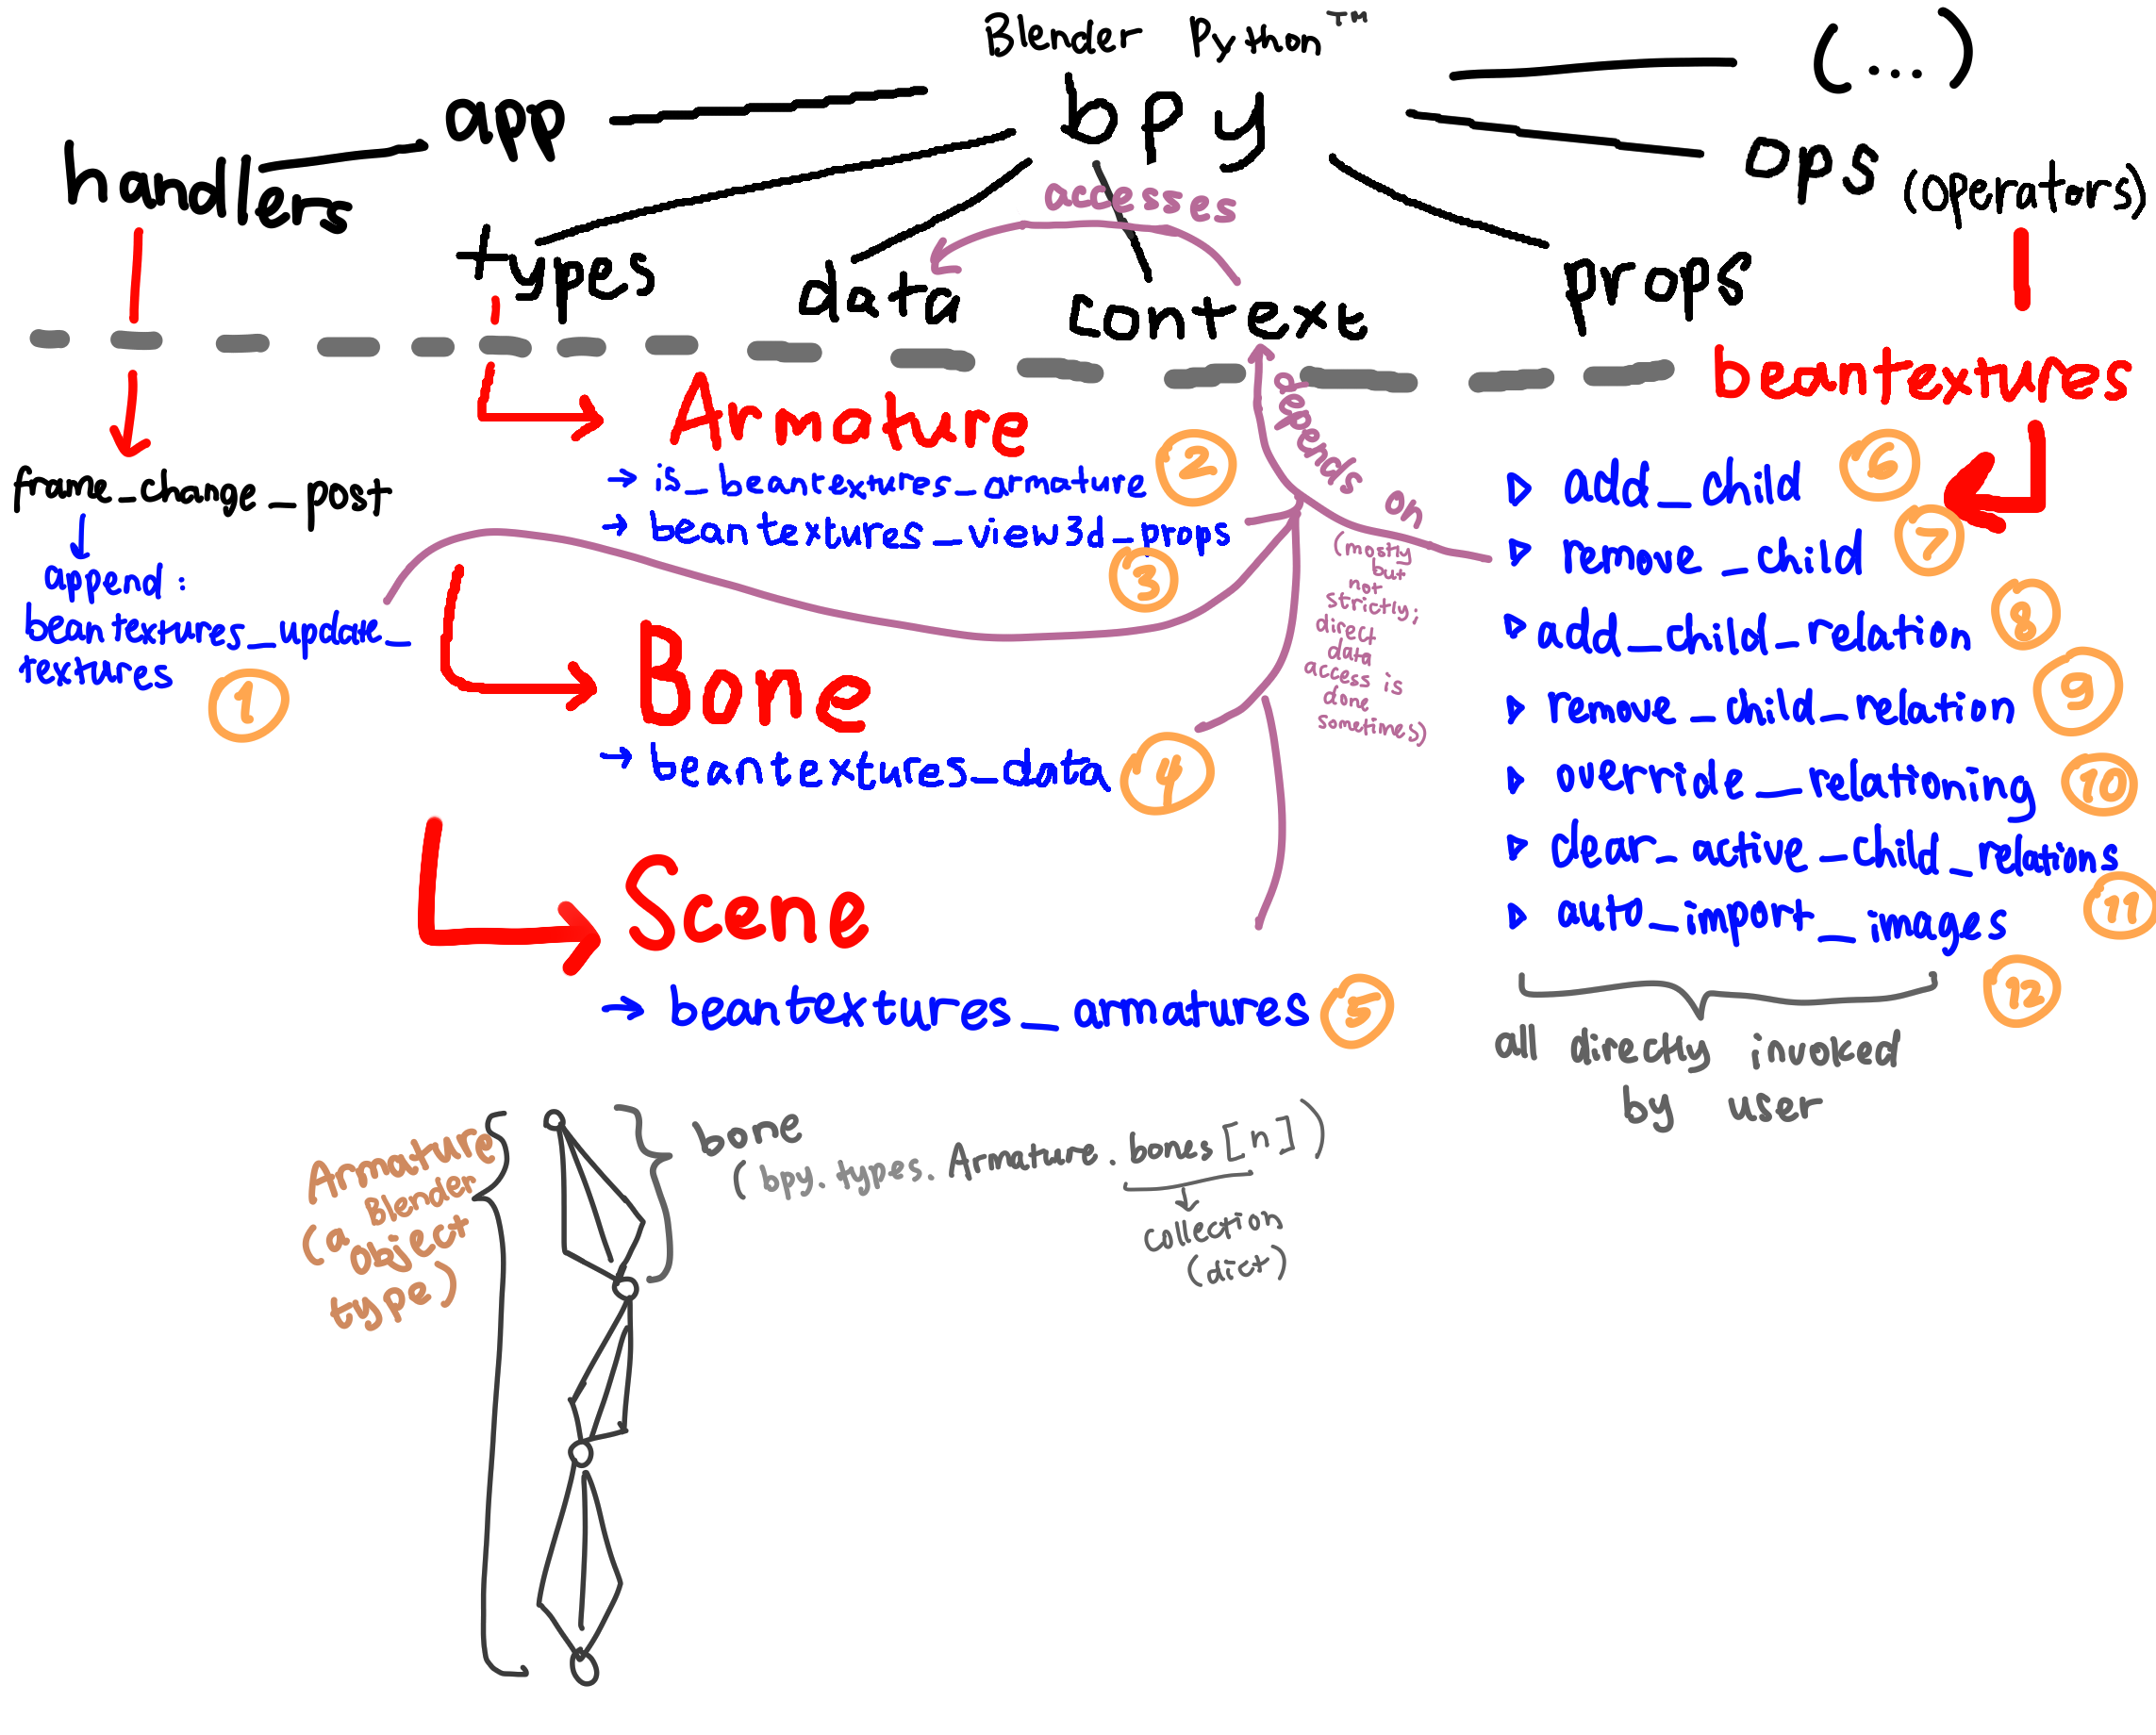 Blender Python™
bpy
(...)
app
handlers
ops (operators)
accesses
types
data
context
props
beantextures
Armature
→ is_beantextures_armature ②
→ beantextures_view3d_props
③
frame_change_post
append:
beantextures_update_
textures
①
depends on
(mostly
but
not
strictly;
direct
data
access is
done
sometimes)
▷ add_child ⑥
▷ remove_child ⑦
▷ add_child_relation ⑧
▷ remove_child_relation ⑨
▷ override_relationing ⑩
▷ clear_active_child_relations
⑪
▷ auto_import_images
⑫
all directly invoked
by user
Bone
→ beantextures_data ④
Scene
→ beantextures_armatures ⑤
Armature
(a Blender
object
type)
bone
(bpy.types.Armature.bones[n])
collection
(dict)